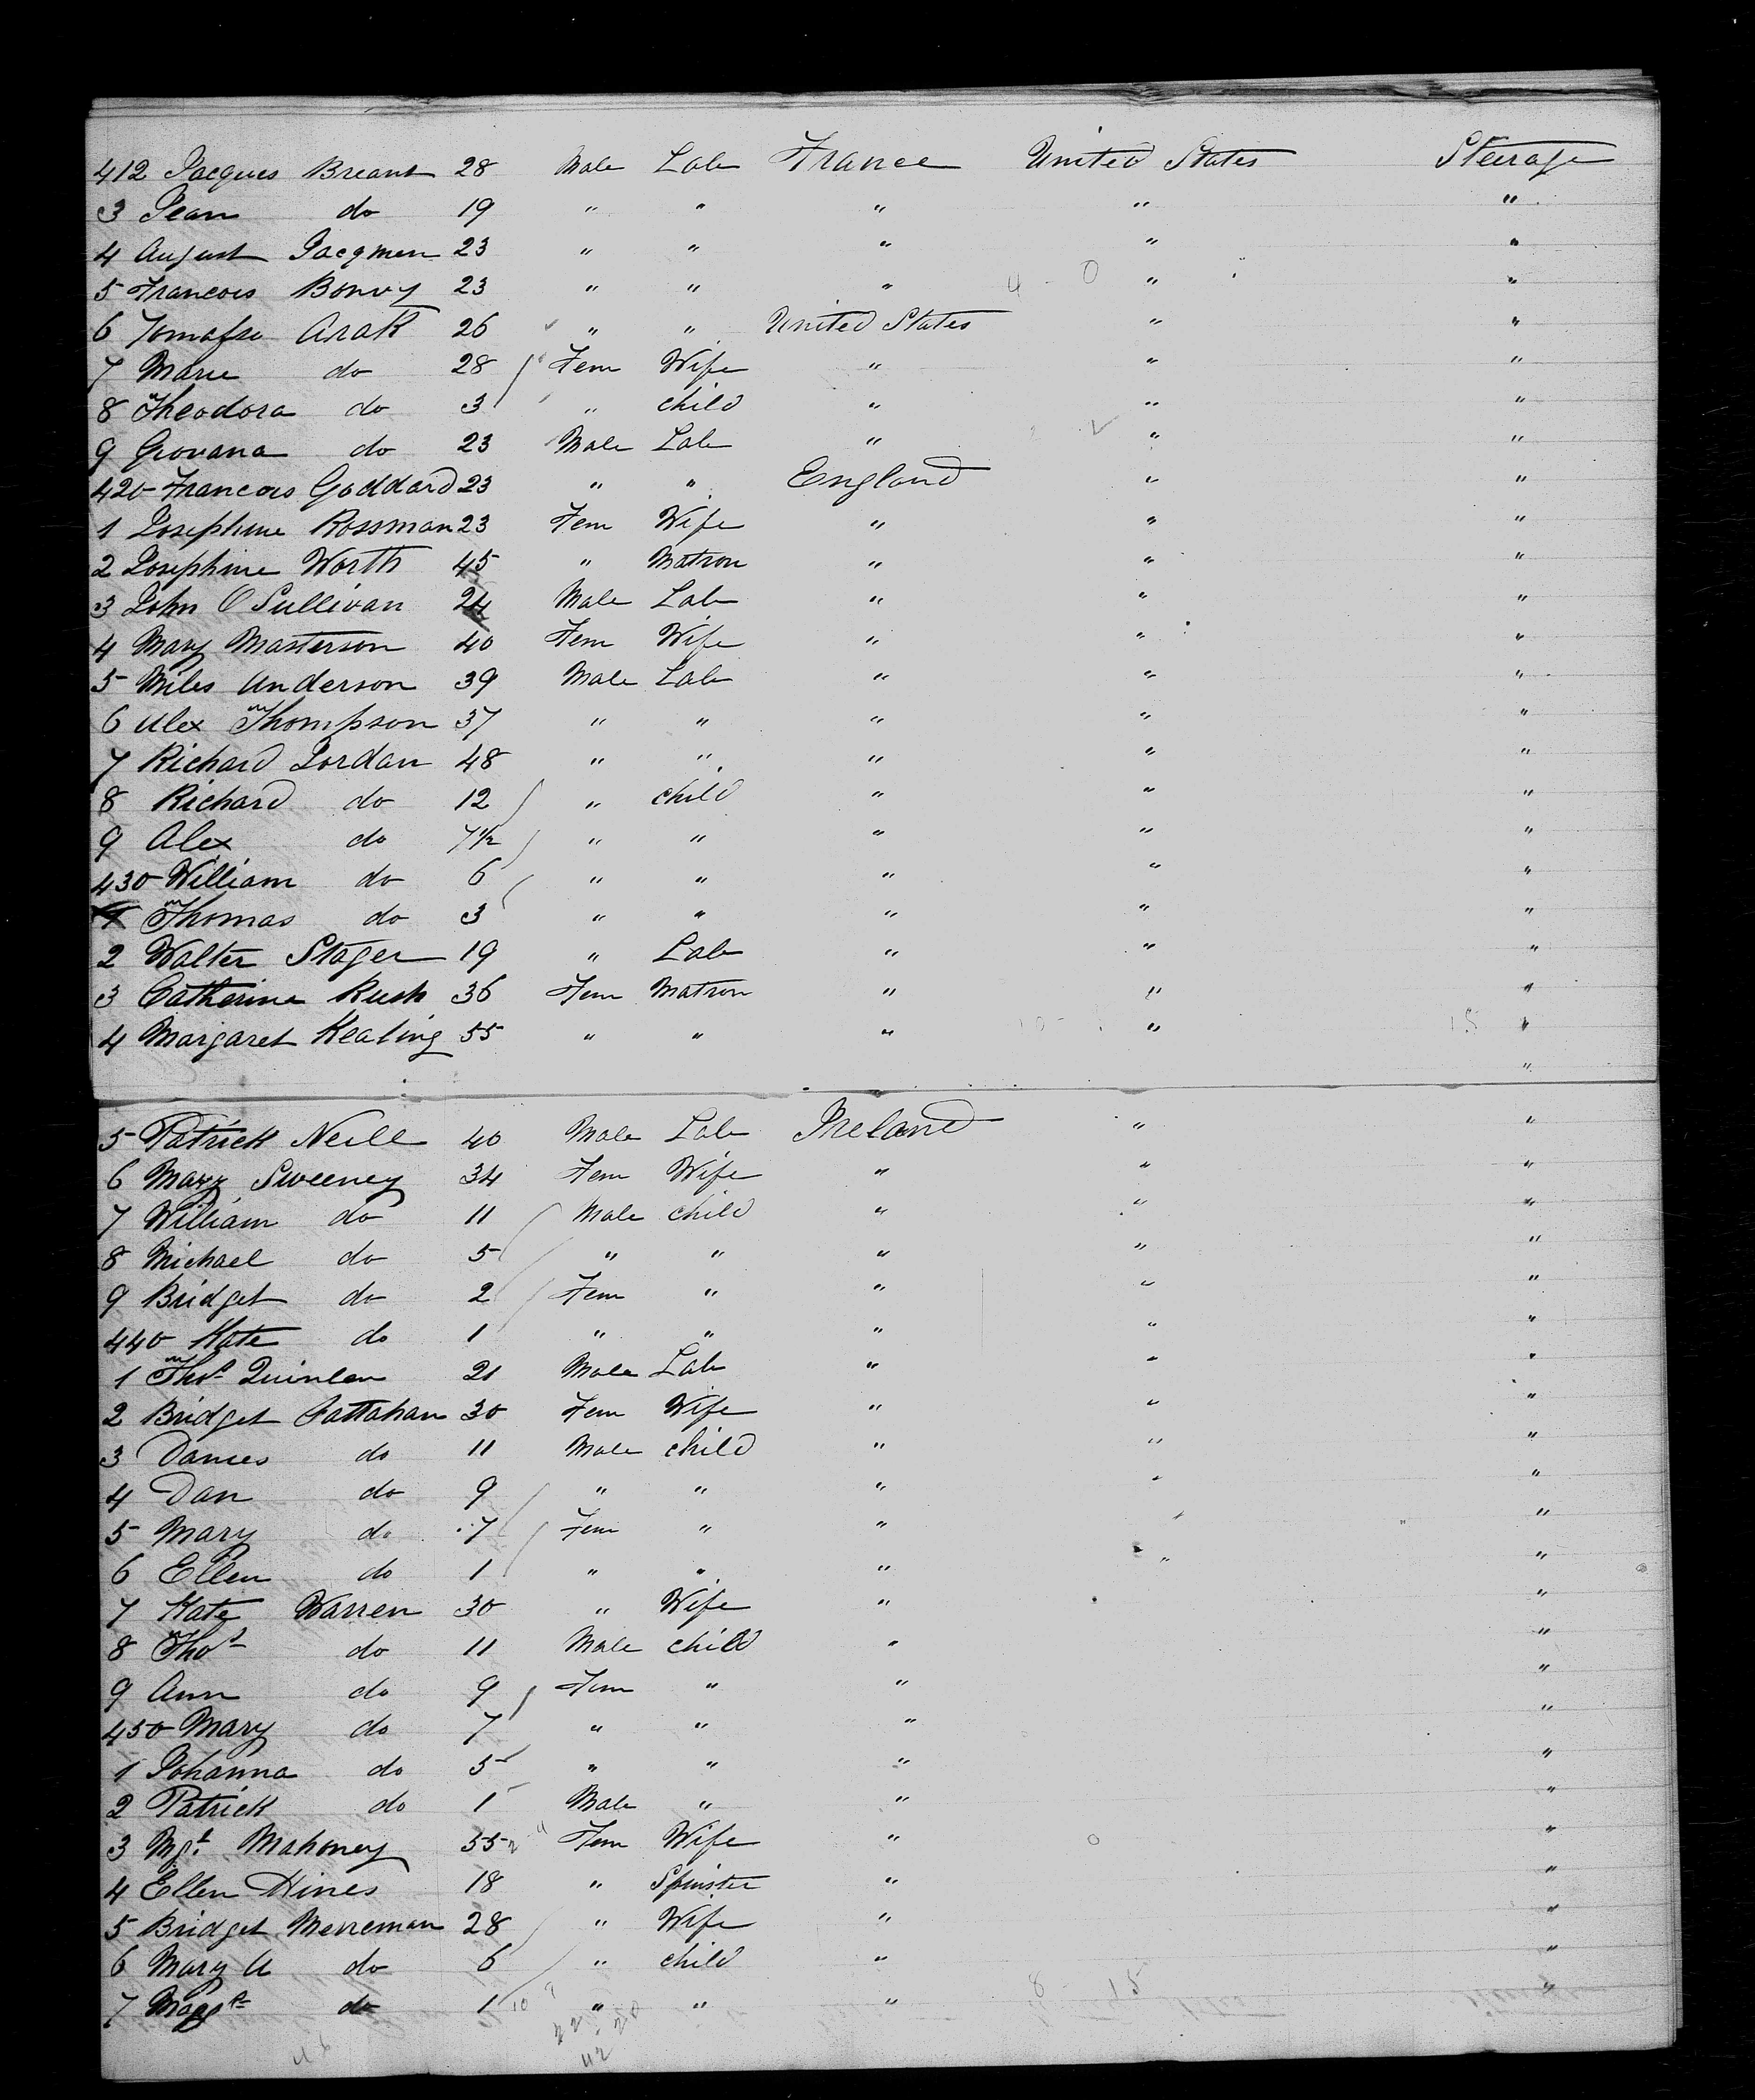 412 Jacques Breant 28 Male Lab France United States Steerage
3 Jean do 19 " " " " "
4 August Jacqmen 23 " " " " "
5 Francois Bonvy 23 " " " " "
6 Arak 26 " " United States " "
7 Marie do 28 Fem Wife " " "
8 Theodora do 3 " child " " "
9 Giovana do 23 Male Lab " " "
420 Francois Goddard 23 " " England " "
1 Josephine Rossman 23 Fem Wife " " "
2 Josephine Worth 45 " Matron " " "
3 John O Sullivan 24 Male Lab " " "
4 Mary Masterson 40 Fem Wife " " "
5 Miles Anderson 39 Male Lab " " "
6 Alex Thompson 37 " " " " "
7 Richard Jordan 48 " " " " "
8 Richard do 12 " child " " "
9 Alex do 7½ " " " " "
430 William do 6 " " " " "
1 Thomas do 3 " " " " "
2 Walter Stager 19 " Lab " " "
3 Catherine Rush 36 Fem Matron " " "
4 Margaret Keating 55 " " " " "
"
5 Patrick Neill 40 Male Lab Ireland " "
6 Mary Sweeney 34 Fem Wife " " "
7 William do 11 Male child " " "
8 Michael do 5 " " " " "
9 Bridget do 2 Fem " " " "
440 Kate do 1 " " " " "
1 Thos Quinlan 21 Male Lab " " "
2 Bridget 30 Fem Wife " " "
3 James do 11 Male child " " "
4 Dan do 9 " " " " "
5 Mary do 7 Fem " " " "
6 Ellen do 1 " " " " "
7 Kate Warren 30 " Wife " "
8 Thos do 11 Male child " "
9 Ann do 9 Fem " " "
450 Mary do 7 " " " "
1 Johanna do 5 " " " "
2 Patrick do 1 Male " " "
3 Mgt Mahoney 55 Fem Wife " "
4 Ellen Hines 18 " Spinster " "
5 Bridget Merreman 28 " Wife " "
6 Mary A do 6 " child " "
7 Maggie do 1 " " " "